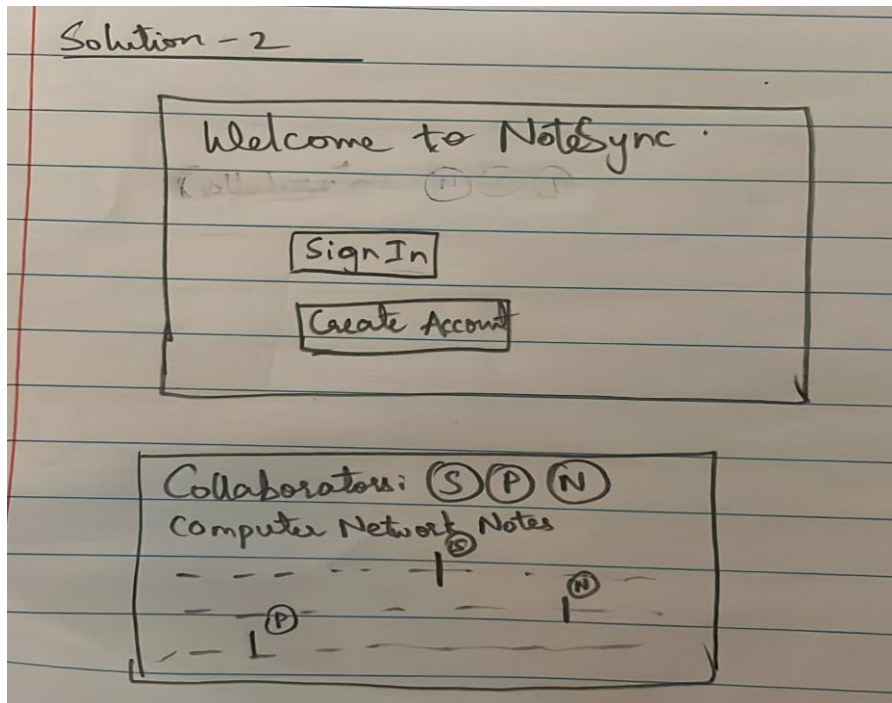 Solution - 2
Welcome to NoteSync.
Sign In
Create Account
Collaborators: S P N
Computer Network Notes
S
N
P